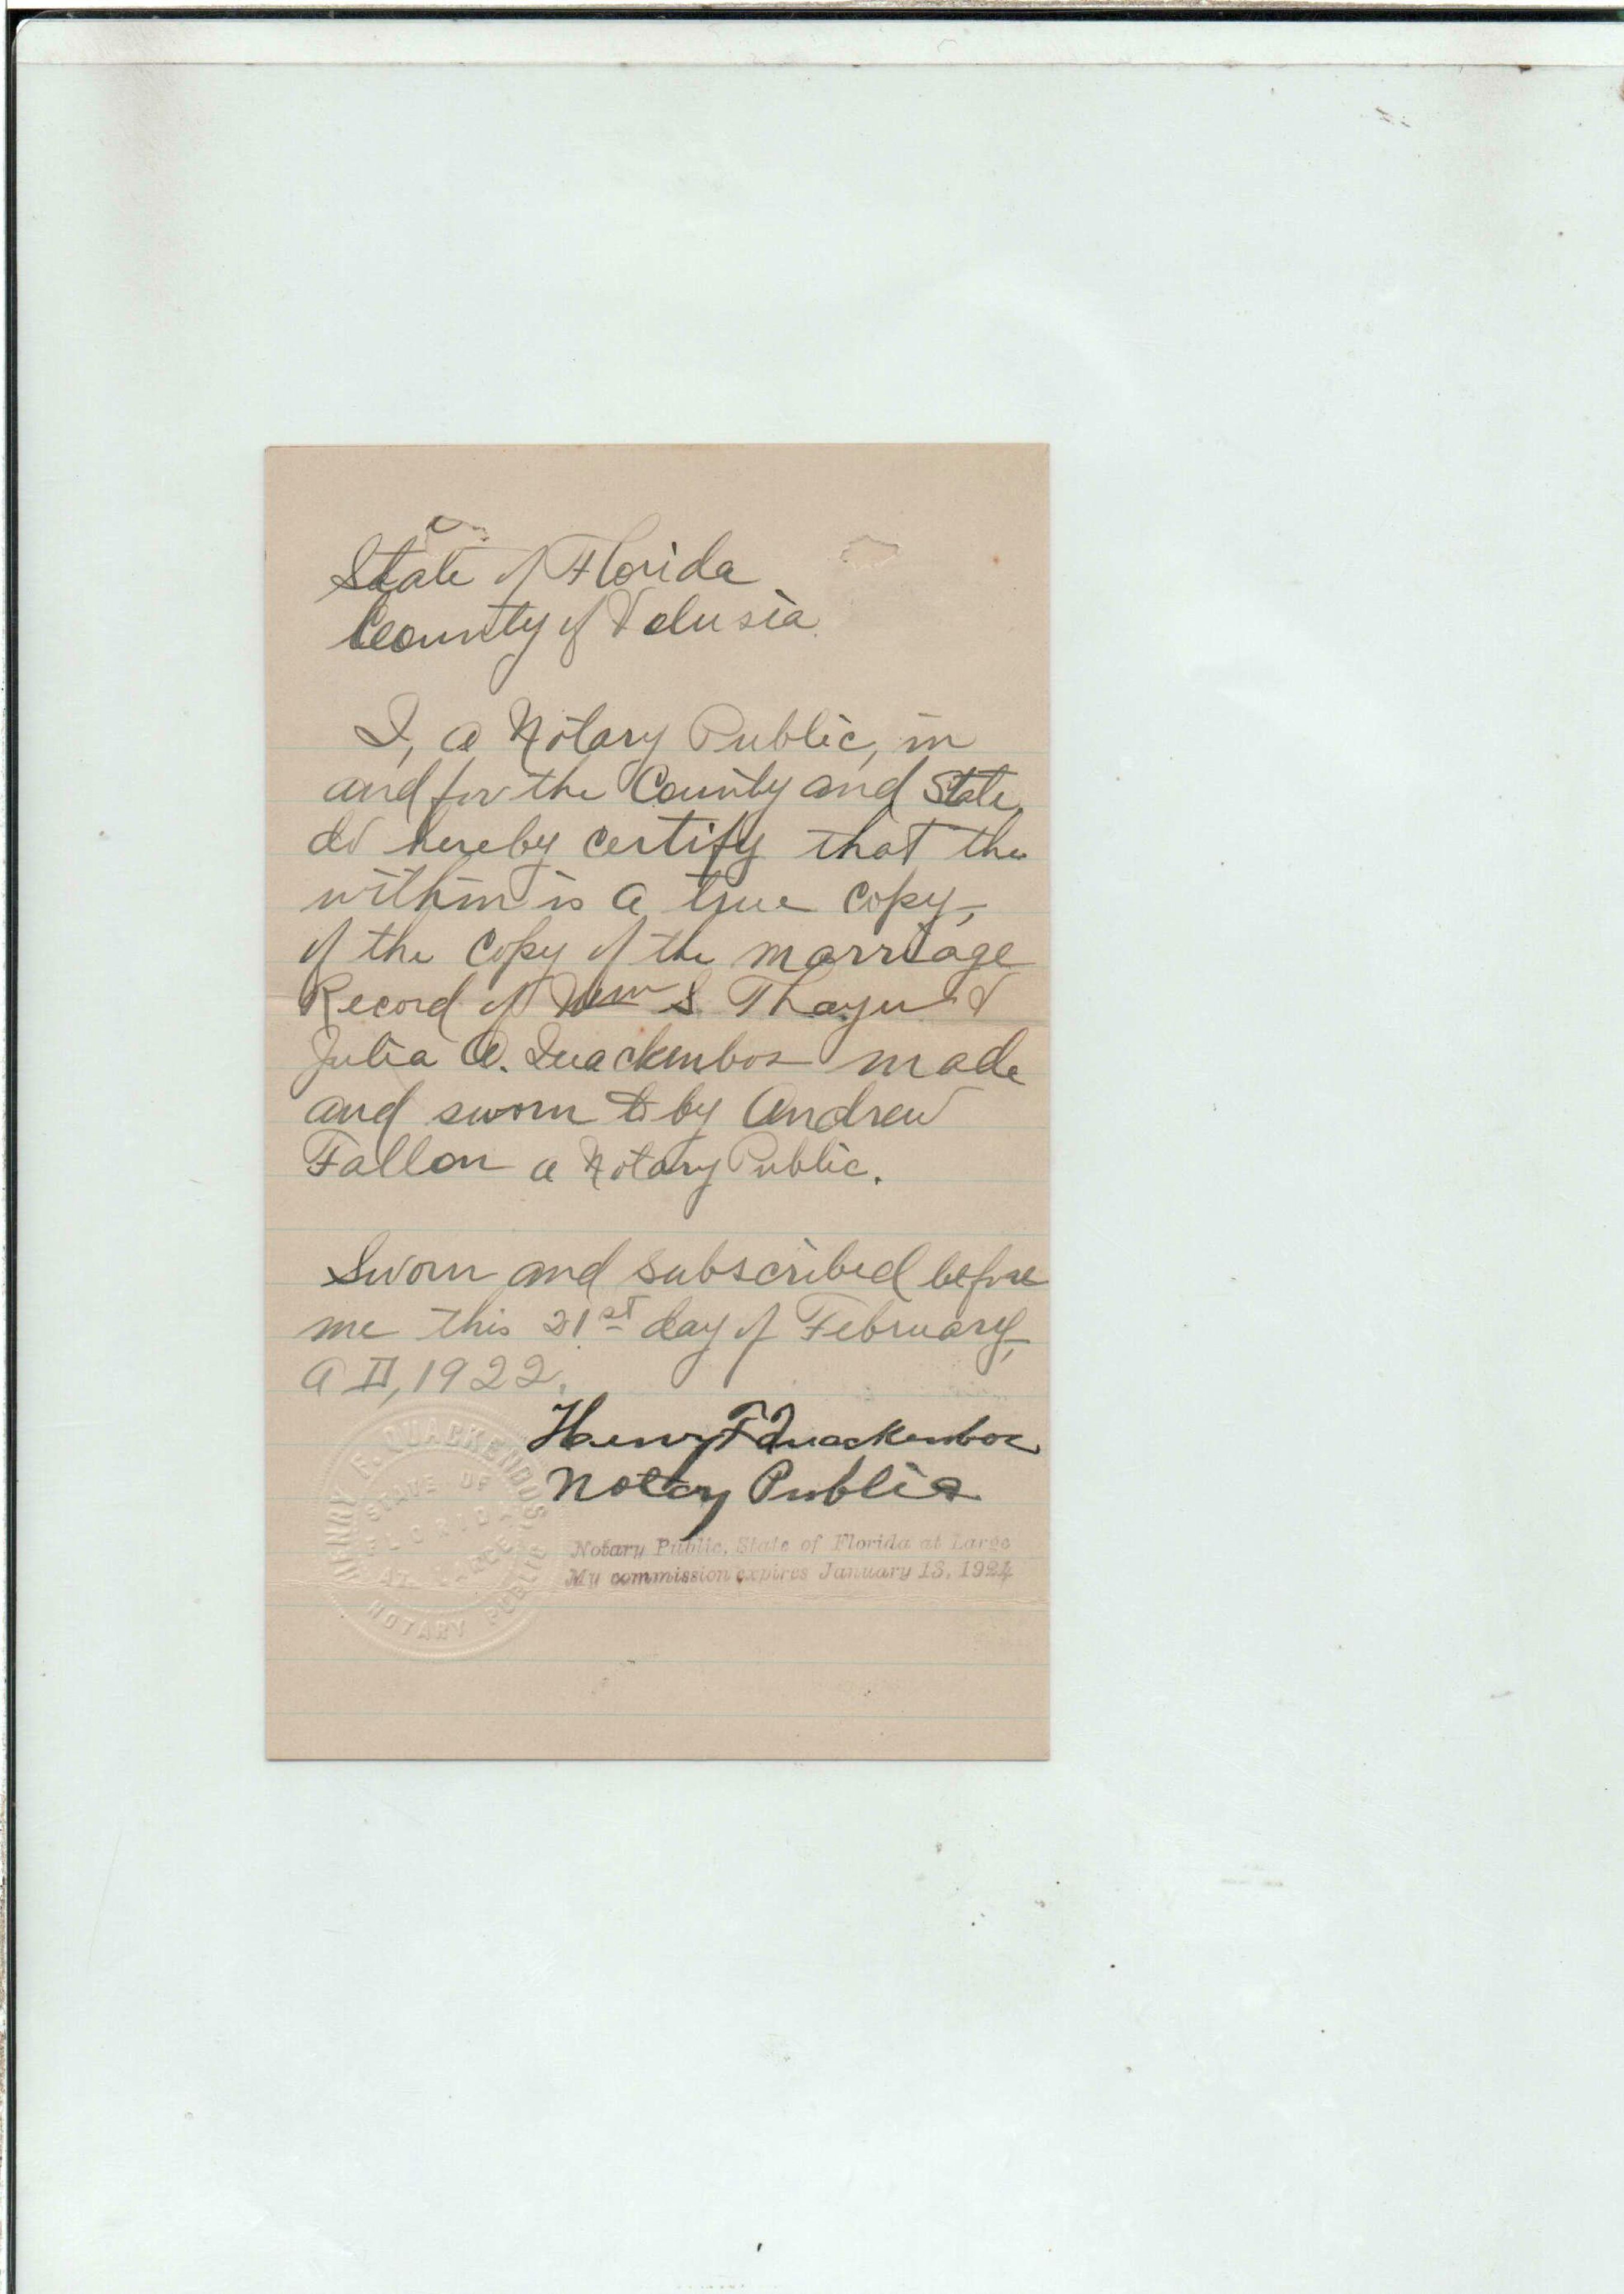 State of Florida
County of Volusia.
I, a Notary Public, in
and for the County and State,
do hereby certify that the
within is a true copy,
of the copy of the marriage
Record of Wm S. Thayer &
Julia A. Quackenbos made
and sworn to by Andrew
Fallon a Notary Public.
Sworn and subscribed before
me this 21st day of February,
A D, 1922.
Henry F Quackenbos
Notary Public
HENRY F. QUACKENBOS,
STATE OF
FLORIDA
AT LARGE
NOTARY PUBLIC
Notary Public, State of Florida at Large
My commission expires January 13, 1924